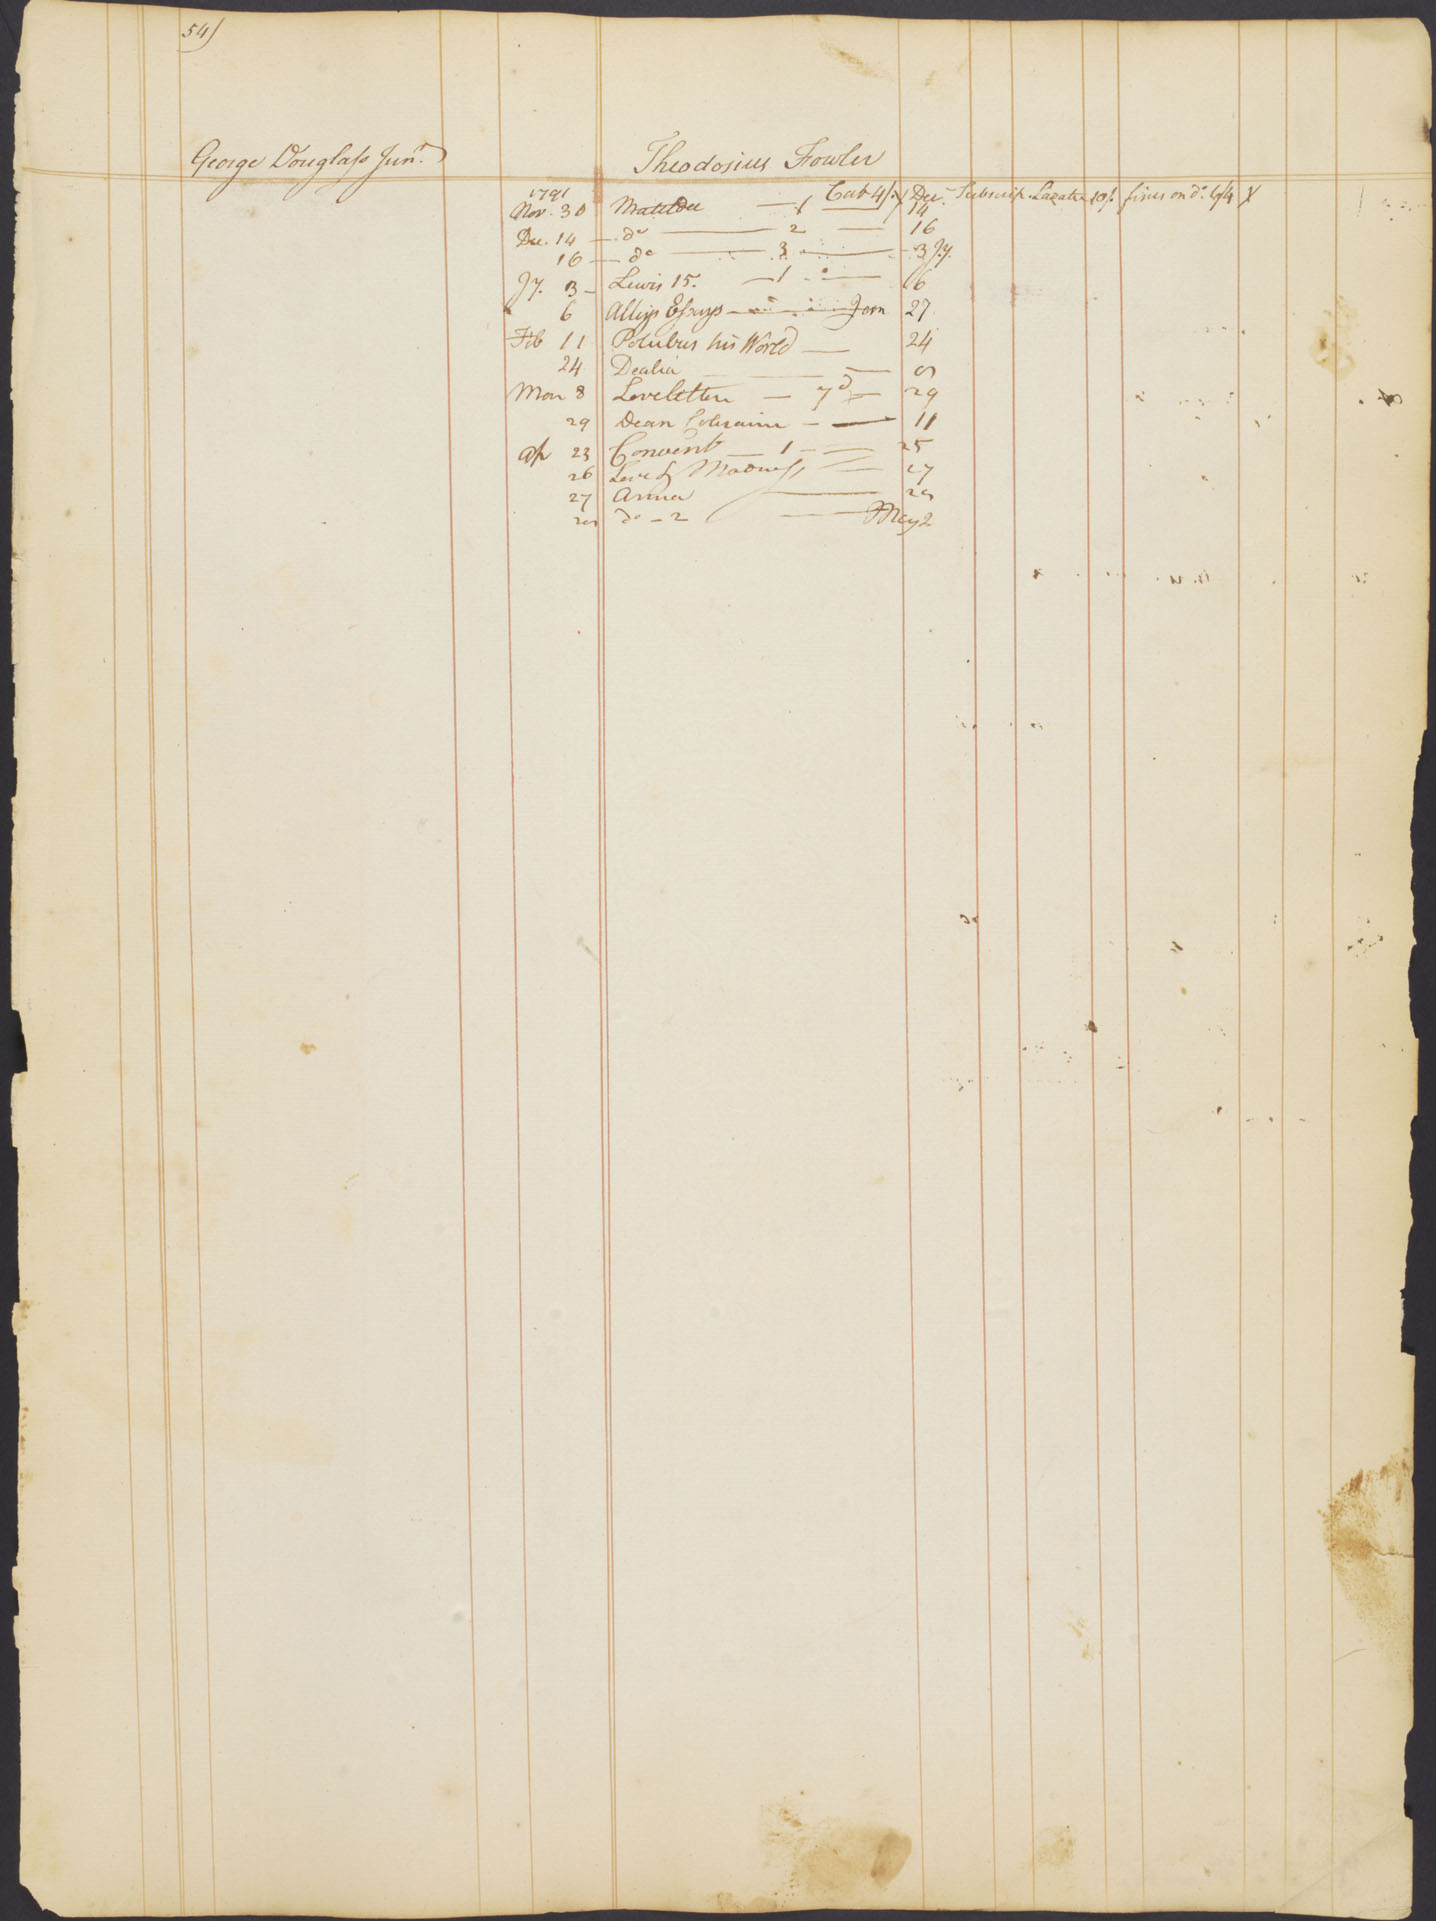 54)
George Douglass Junr.
Theodosius Fowler
1791 Cat 4/. Dec. Subscrip. 10/. fines on do. 6/4
Nov. 30 Matilda — 1 — 14
Dec. 14 — do — 2 — 16
16 — do — 3 — 3 Jy.
Jy. 3 — Lewis 15. — 1 — 6
6 Essays — Jan 27
Feb 11 his World — 24
24 Dealia — 8
Mar 8 Loveletters — 29
29 Dean Coleraine — 11
Ap 23 Convent — 1 — 25
26 Love & Madness — 27
27 Anna — 28
28 do — 2 — May 2